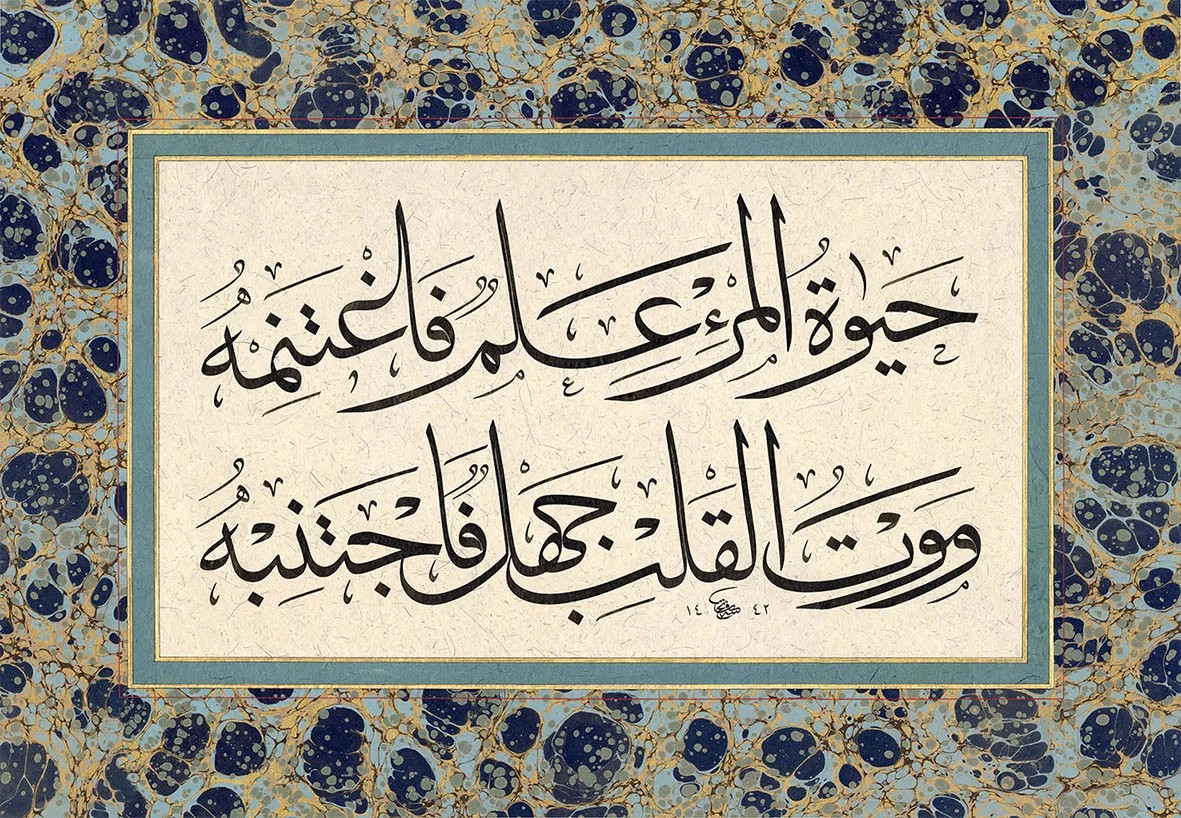 حَيٰوةُ الْمَرْءِ عِلْمٌ فَاغْتَنِمْهُ
وَمَوْتُ الْقَلْبِ جَهْلٌ فَاجْتَنِبْهُ
١٤ ٤٢